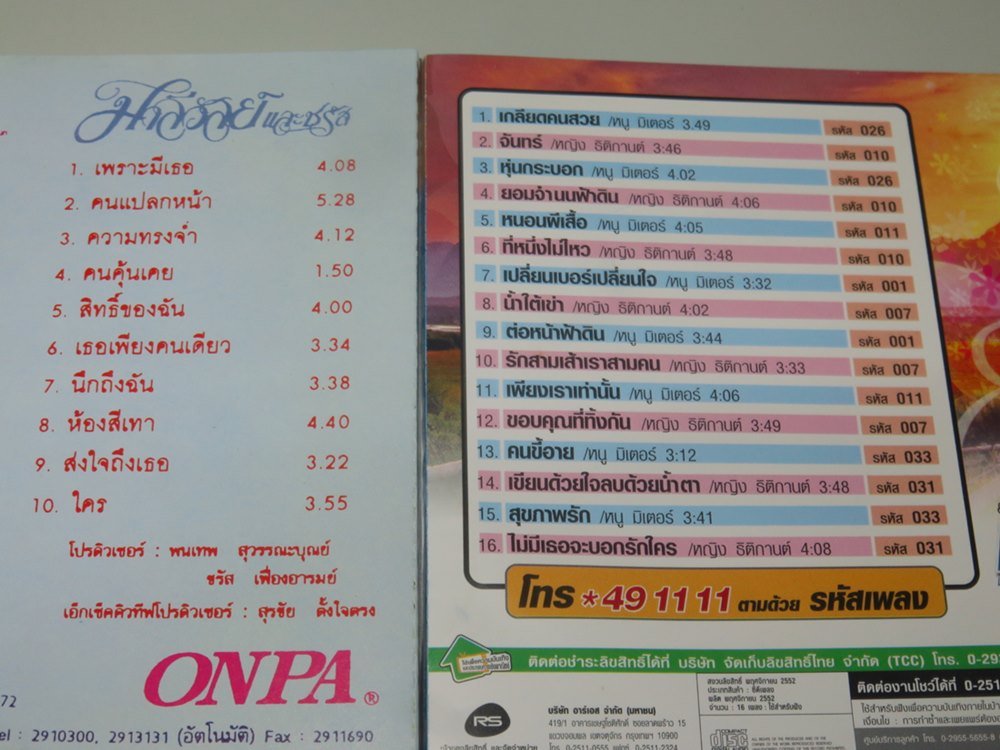 มาลีวัลย์และชรัส
1. เพราะมีเธอ 4.08
2. คนแปลกหน้า 5.28
3. ความทรงจำ 4.12
4. คนคุ้นเคย 1.50
5. สิทธิ์ของฉัน 4.00
6. เธอเพียงคนเดียว 3.34
7. นึกถึงฉัน 3.38
8. ห้องสีเทา 4.40
9. ส่งใจถึงเธอ 3.22
10. ใคร 3.55
โปรดิวเซอร์ : พนเทพ สุวรรณะบุณย์
ชรัส เฟื่องอารมย์
เอ็กเซ็คคิวทีฟโปรดิวเซอร์ : สุรชัย ตั้งใจตรง
ONPA®
72
el : 2910300, 2913131 (อัตโนมัติ) Fax : 2911690
1. เกลียดคนสวย /หนู มิเตอร์ 3.49 รหัส 026
2. จันทร์ /หญิง ธิติกานต์ 3:46 รหัส 010
3. หุ่นกระบอก /หนู มิเตอร์ 4.02 รหัส 026
4. ยอมจำนนฟ้าดิน /หญิง ธิติกานต์ 4:06 รหัส 010
5. หนอนผีเสื้อ /หนู มิเตอร์ 4:05 รหัส 011
6. ที่หนึ่งไม่ไหว /หญิง ธิติกานต์ 3:48 รหัส 010
7. เปลี่ยนเบอร์เปลี่ยนใจ /หนู มิเตอร์ 3:32 รหัส 001
8. น้ำใต้เข่า /หญิง ธิติกานต์ 4:02 รหัส 007
9. ต่อหน้าฟ้าดิน /หนู มิเตอร์ 3:44 รหัส 001
10. รักสามเส้าเราสามคน /หญิง ธิติกานต์ 3:33 รหัส 007
11. เพียงเราเท่านั้น /หนู มิเตอร์ 4:06 รหัส 011
12. ขอบคุณที่ทิ้งกัน /หญิง ธิติกานต์ 3:49 รหัส 007
13. คนขี้อาย /หนู มิเตอร์ 3:12 รหัส 033
14. เขียนด้วยใจลบด้วยน้ำตา /หญิง ธิติกานต์ 3:48 รหัส 031
15. สุขภาพรัก /หนู มิเตอร์ 3:41 รหัส 033
16. ไม่มีเธอจะบอกรักใคร /หญิง ธิติกานต์ 4:08 รหัส 031
โทร *49 11 11 ตามด้วย รหัสเพลง
ติดต่อชำระลิขสิทธิ์ได้ที่ บริษัท จัดเก็บลิขสิทธิ์ไทย จำกัด (TCC) โทร. 0-29
RS
บริษัท อาร์เอส จำกัด (มหาชน)
419/1 อาคารเชษฐโชติศักดิ์ ซอยลาดพร้าว 15
แขวงจอมพล เขตจตุจักร กรุงเทพฯ 10900
โทร. 0-2511-0555 แฟกซ์ 0-2511-2324
สงวนลิขสิทธิ์ พฤศจิกายน 2552
ประเภทสินค้า : ซีดีเพลง
ผลิต พฤศจิกายน 2552
จำนวน : 16 เพลง : ใช้สำหรับฟัง
COMPACT disc
ติดต่องานโชว์ได้ที่ 0-2511
ใช้สำหรับฟังเพื่อความบันเทิงภายในบ้าน
เงื่อนไข : การทำซ้ำและเผยแพร่ต้อง
ศูนย์บริการลูกค้า โทร. 0-2955-5655-8